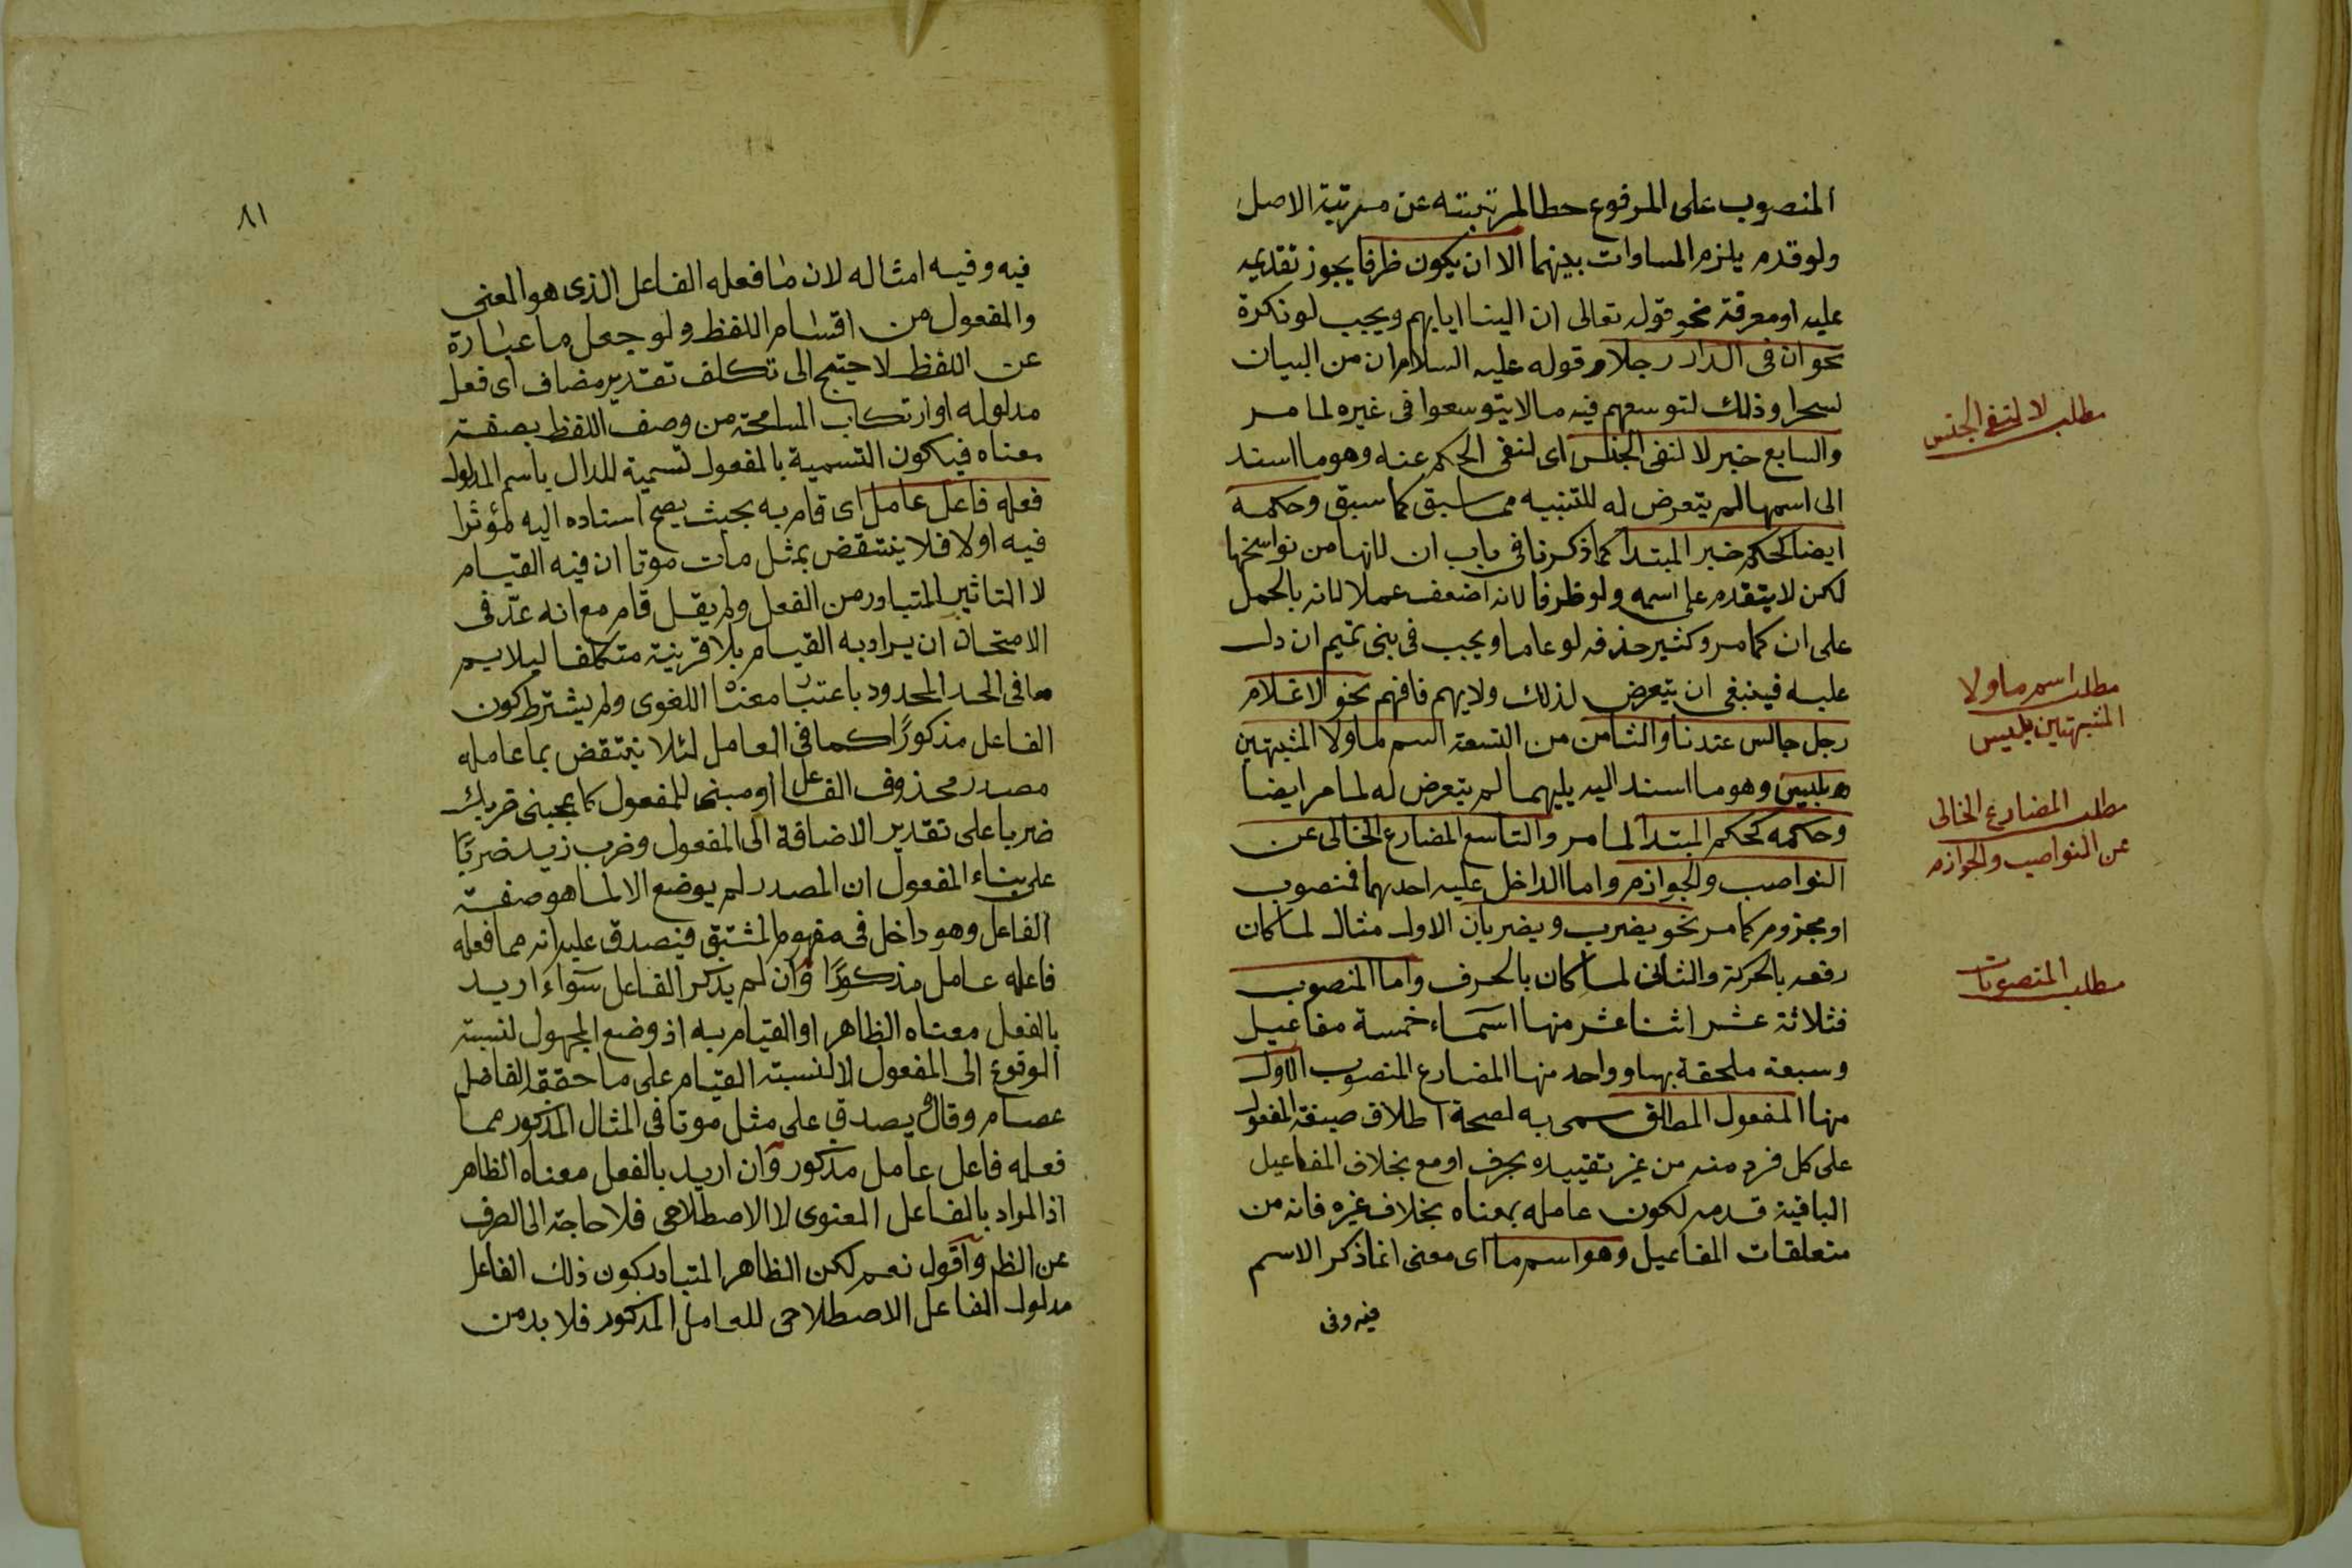 المنصوب على المرفوع حطا لمرتبته عن مرتبة الاصل
ولو قدم يلزم المساوات بينهما الا ان يكون ظرفا يجوز تقديمه
عليه او معرفة نحو قوله تعالى ان الينا ايابهم ويجب لو نكرة
نحو ان فى الدار رجلا وقوله عليه السلام ان من البيان
لسحرا وذلك لتوسعهم فيه مالا يتوسعوا فى غيره لما مر
والسابع خبر لا لنفى الجنس اى لنفى الحكم عنه وهو ما اسند
الى اسمها لم يتعرض له للتنبيه مما سبق كما سبق وحكمه
ايضا كحكم خبر المبتدأ كما ذكرنا فى باب ان لانها من نواسخها
لكن لا يتقدم على اسمه ولو ظرفا لانه اضعف عملا لانه بالحمل
على ان كما مر وكثير حذفه لو عاما ويجب فى بنى تميم ان دل
عليه فينبغى ان يتعرض لذلك ولا يهم فافهم نحو لا غلام
رجل جالس عندنا والثامن من التسعة اسم ما ولا المشبهتين
بليس وهو ما اسند اليه يليهما لم يتعرض له لما مر ايضا
وحكمه كحكم المبتدأ لما مر والتاسع المضارع الخالى عن
النواصب والجوازم واما الداخل عليه احدهما فمنصوب
او مجزوم كما مر نحو يضرب ويضربان الاول مثال لما كان
رفعه بالحركة والثانى لما كان بالحرف واما المنصوب
فثلاثة عشر اثنا عشر منها اسماء خمسة مفاعيل
وسبعة ملحقة بها وواحد منها المضارع المنصوب الاول
منها المفعول المطلق سمى به لصحة اطلاق صيغة المفعول
على كل فرد منه من غير تقييده بحرف او مع بخلاف المفاعيل
الباقية قدمه لكون عامله بمعناه بخلاف غيره فانه من
متعلقات المفاعيل وهو اسم ما اى معنى انما ذكر الاسم
فيه وفى
مطلب لا لنفى الجنس
مطلب اسم ما ولا
المشبهتين بليس
مطلب المضارع الخالى
عن النواصب والجوازم
مطلب المنصوبات
٨١
فيه وفيه امثاله لان ما فعله الفاعل الذى هو المعنى
والمفعول من اقسام اللفظ ولو جعل ما عبارة
عن اللفظ لاحتيج الى تكلف تقدير مضاف اى فعل
مدلوله او ارتكاب المسامحة من وصف اللفظ بصفة
معناه فيكون التسمية بالمفعول تسمية للدال باسم المدلول
فعله فاعل عامل اى قام به بحيث يصح اسناده اليه مؤثرا
فيه اولا فلا ينتقض بمثل مات موتا ان فيه القيام
لا التاثير المتبادر من الفعل ولم يقل قام مع انه عد فى
الامتحان ان يراد به القيام بلا قرينة متكلفا ليلايم
ما فى الحد المحدود باعتبار معناه اللغوى ولم يشترط كون
الفاعل مذكورًا كما فى العامل لئلا ينتقض بما عامله
مصدر محذوف الفاعل او مبنى للمفعول كما يعجبنى ضربك
ضربا على تقدير الاضافة الى المفعول وضرب زيد ضربًا
على بناء المفعول ان المصدر لم يوضع الا لما هو صفة
الفاعل وهو داخل فى مفهوم المشتق فيصدق عليه انه مما فعله
فاعله عامل مذكورًا وان لم يذكر الفاعل سواء اريد
بالفعل معناه الظاهر او القيام به اذ وضع المجهول لنسبة
الوقوع الى المفعول لا لنسبة القيام على ما حققه الفاضل
عصام وقال يصدق على مثل موتا فى المثال المذكور مما
فعله فاعل عامل مذكور وان اريد بالفعل معناه الظاهر
اذ المراد بالفاعل المعنوى لا الاصطلاحى فلا حاجة الى الصرف
عن الظ واقول نعم لكن الظاهر المتبادر كون ذلك الفاعل
مدلول الفاعل الاصطلاحى للعامل المذكور فلا بد من